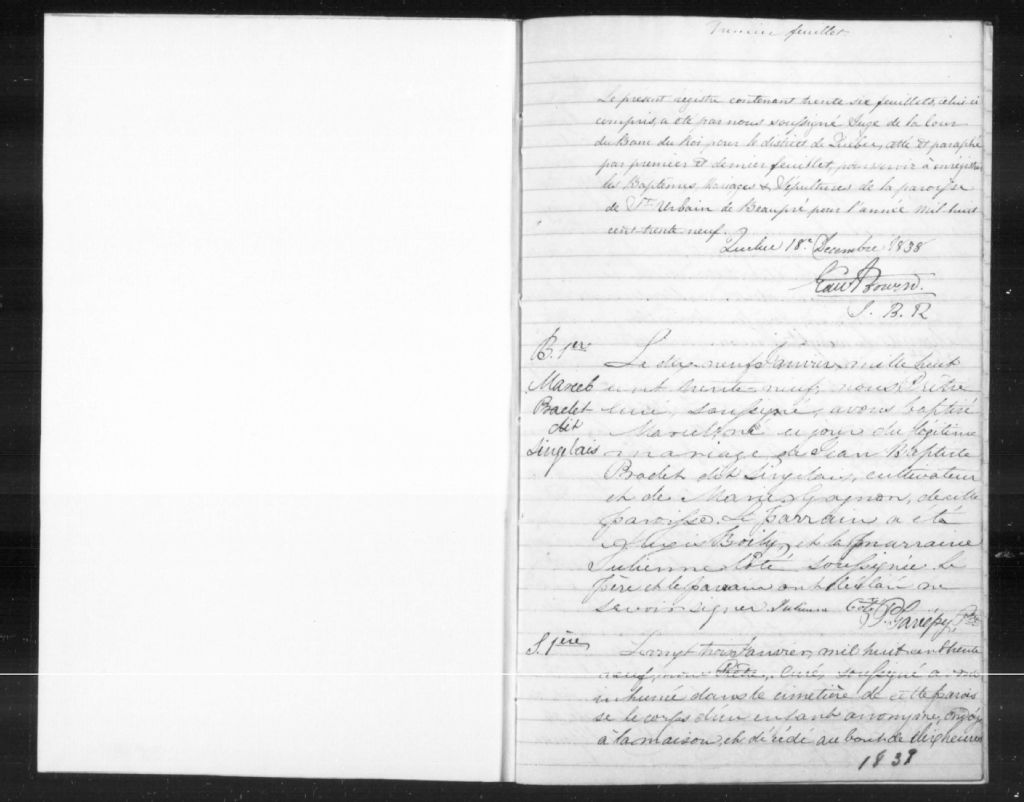 Premier feuillet.
Le present registre contenant trente six feuillets, celui ci
compris, a été par nous soussigné Juge de la Cour
du Banc du Roi pour le district de Quebec, coté et paraphé
par premier et dernier feuillet, pour servir à enrégistrer
les Baptêmes Mariages & Sépultures de la paroisse
de St. Urbain de Beaupré pour l'année mil huit
cent trente neuf.
Quebec 18e Decembre 1838
Bowen.
J. B. R
B. 1er
Marcel
Bradet
dit
Singelais
Le dix neuf Janvier mille huit
cent trente-neuf, nous Prêtre
curé, soussigné, avons baptisé
Marcel né ce jour du légitime
mariage de Jean Baptiste
Bradet dit Singelais, cultivateur
et de Marie Gagnon, de cette
paroisse. Le parrain a été
Alexis Boily, et la marraine
Julienne Côté soussignée. Le
père et le parrain ont déclaré ne
savoir signer Julienne Coté P. Gariépy, Ptre
S. 1ère
Le vingt trois Janvier, mil huit cent trente
neuf, nous Prêtre, Curé, soussigné avons
inhumé dans le cimetière de cette parois
se le corps d'un enfant anonyme, ondoyé
à la maison, et décédé au bout de dix heures
1839